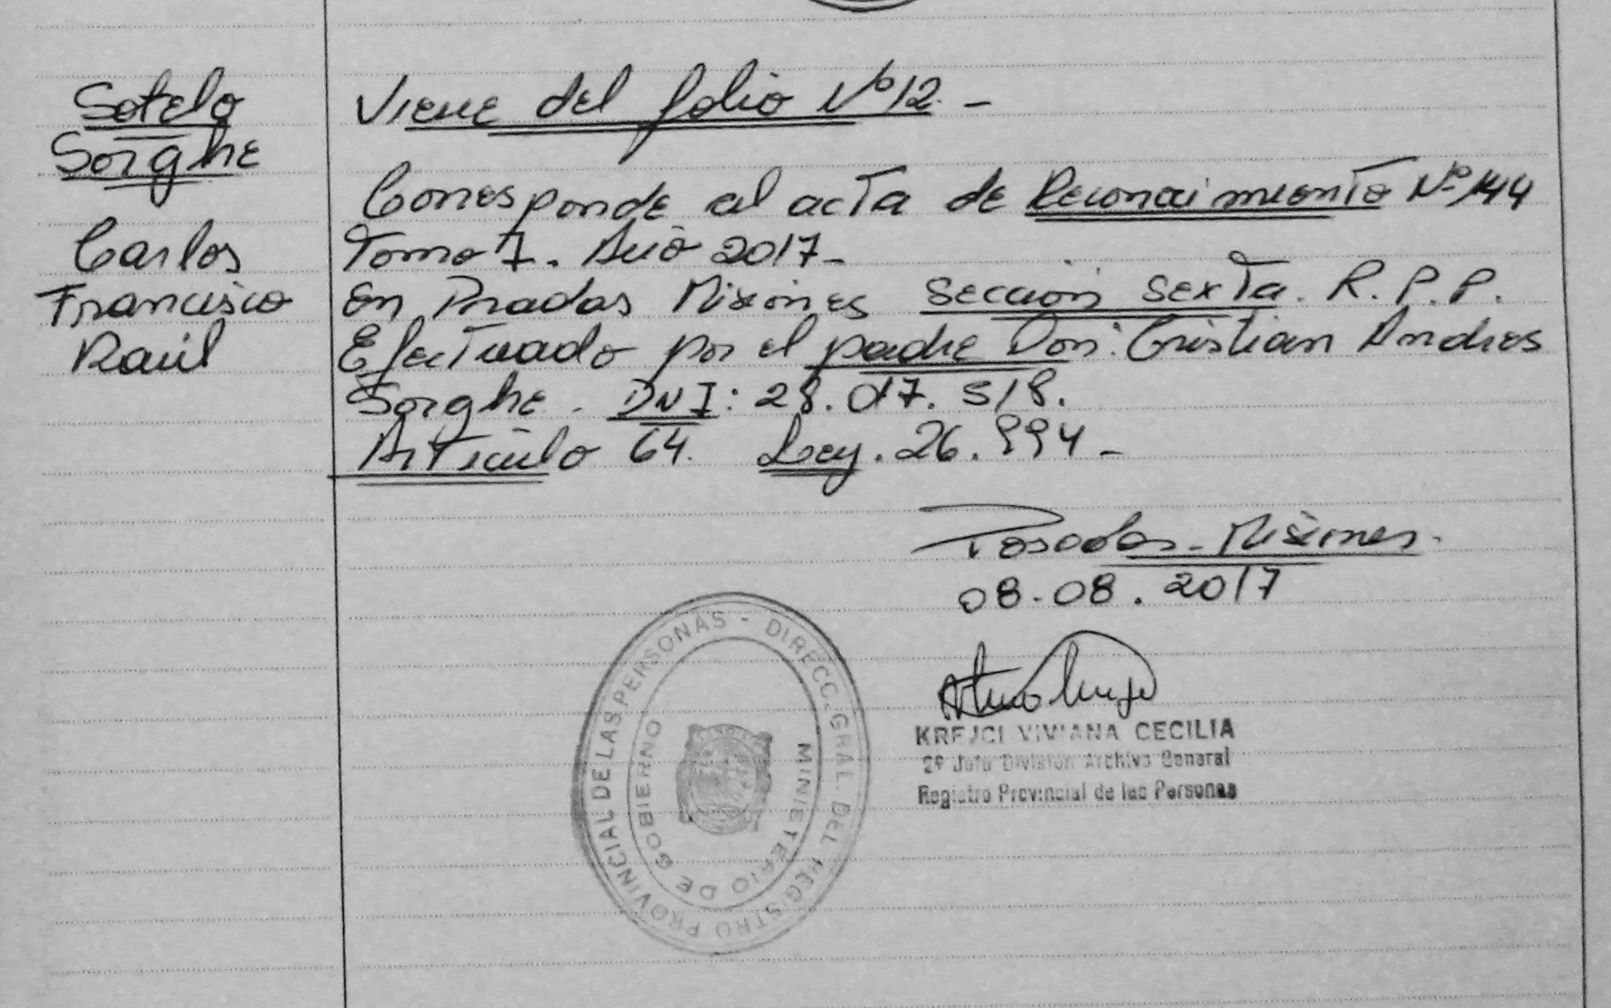 Sotelo
Sorghe
Carlos
Francisco
Raúl
Viene del folio Nº 12. -
Corresponde al acta de Reconocimiento Nº 144
Tomo I. Año 2017-
En Posadas Misiones Sección Sexta. R.P.P.
Efectuado por el padre Don: Cristian Andres
Sorghe. DNI: 28.017.518.
Artículo 64. Ley. 26.994-
Posadas - Misiones.
08-08.2017
KREJCI VIVIANA CECILIA
2º Jefe División Archivo General
Registro Provincial de las Personas
DIRECC. GRAL. DEL REGISTRO PROVINCIAL DE LAS PERSONAS -
MINISTERIO DE GOBIERNO